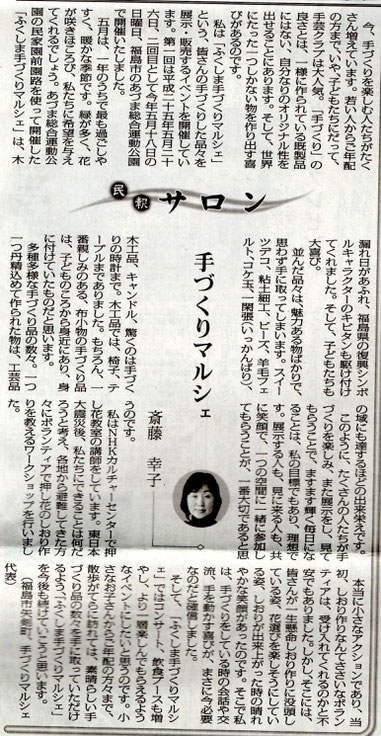 民報サロン
手づくりマルシェ
斎藤 幸子
今、手づくりを楽しむ人たちがたく
さん増えています。若い人からご年配
の方まで、いや、子どもたちにだって、
手芸クラブは大人気。「手づくり」の
良さとは、一様に作られている既製品
にはない、自分なりのオリジナル性を
出せることにあります。そして、世界
にたった一つしかない物を作り出す喜
びがあるのです。
私は「ふくしま手づくりマルシェ」
という、皆さんの手づくりした品々を
展示・販売するイベントを開催してい
ます。第一回は平成二十五年五月二十
六日、二回目として今年五月十八日の
日曜日、福島市のあづま総合運動公園
で開催いたしました。
五月は、一年のうちで最も過ごしや
すく、暖かな季節です。緑が多く、花
が咲きほころび、私たちに希望を与え
てくれるでしょう。あづま総合運動公
園の民家園前園路を使って開催した
「ふくしま手づくりマルシェ」は、木
漏れ日があふれ、福島県の復興シンボ
ルキャラクターのキビタンも駆け付け
てくれました。そして、子どもたちも
大喜び。
並んだ品々は、魅力ある物ばかりで、
思わず手に取ってしまいます。スイー
ツデコ、粘土細工、ビーズ、羊毛フェ
ルト、コケ玉、一閑張(いっかんばり)、
木工品、キャンドル、驚くのは手づく
りの時計まで。木工品では、椅子、テ
ーブルまでありました。もちろん、一
番親しみのある、布小物の手づくり品
は、子どものころから身近にあり、身
に付けていたものだと思います。
多種多様な手づくり品の数々。一つ
一つ丹精込めて作られた物は、工芸品
の域にも達するほどの出来栄えです。
このように、たくさんの人たちが手
づくりを楽しみ、また展示をし、見て
もらうことで、ますます輝く毎日にな
ることは、私の目標でもあり、理想で
す。展示する人も、見に来る人も、共
に笑顔で、一つの空間に一緒に参加し
てもらうことが、一番大切であると思
うのです。
私はNHKカルチャーセンターで押
し花教室の講師をしています。東日本
大震災後、私たちにできることは何だ
ろうと考え、各地から避難してきた方
々にボランティアで押し花のしおり作
りを教えるワークショップを行いまし
本当に小さなアクションであり、当
初、しおり作りなんてささいなボラン
ティアは、受け入れてくれるのかと不
安でもありました。しかし、そこには、
皆さんが一生懸命しおり作りに没頭し
ている姿、花選びを楽しそうにしてい
る姿、しおりが出来上がった時の晴れ
やかな笑顔があったのです。そこで私
は、手づくりをしている時の会話や交
流、手を動かす喜びが、まさに今必要
なのだと確信しました。
そして、「ふくしま手づくりマルシ
ェ」ではコンサート、飲食ブースも増
やし、より一層楽しんでもらえるよう
なイベントにしたいと思うのです。小
さなお子さんからご年配の方々まで、
散歩がてらに訪れては、素晴らしい手
づくり品の数々を手に取っていただけ
るよう、「ふくしま手づくりマルシェ」
を今後も続けていこうと思います。
(福島市矢剣町、手づくりマルシェ
代表)